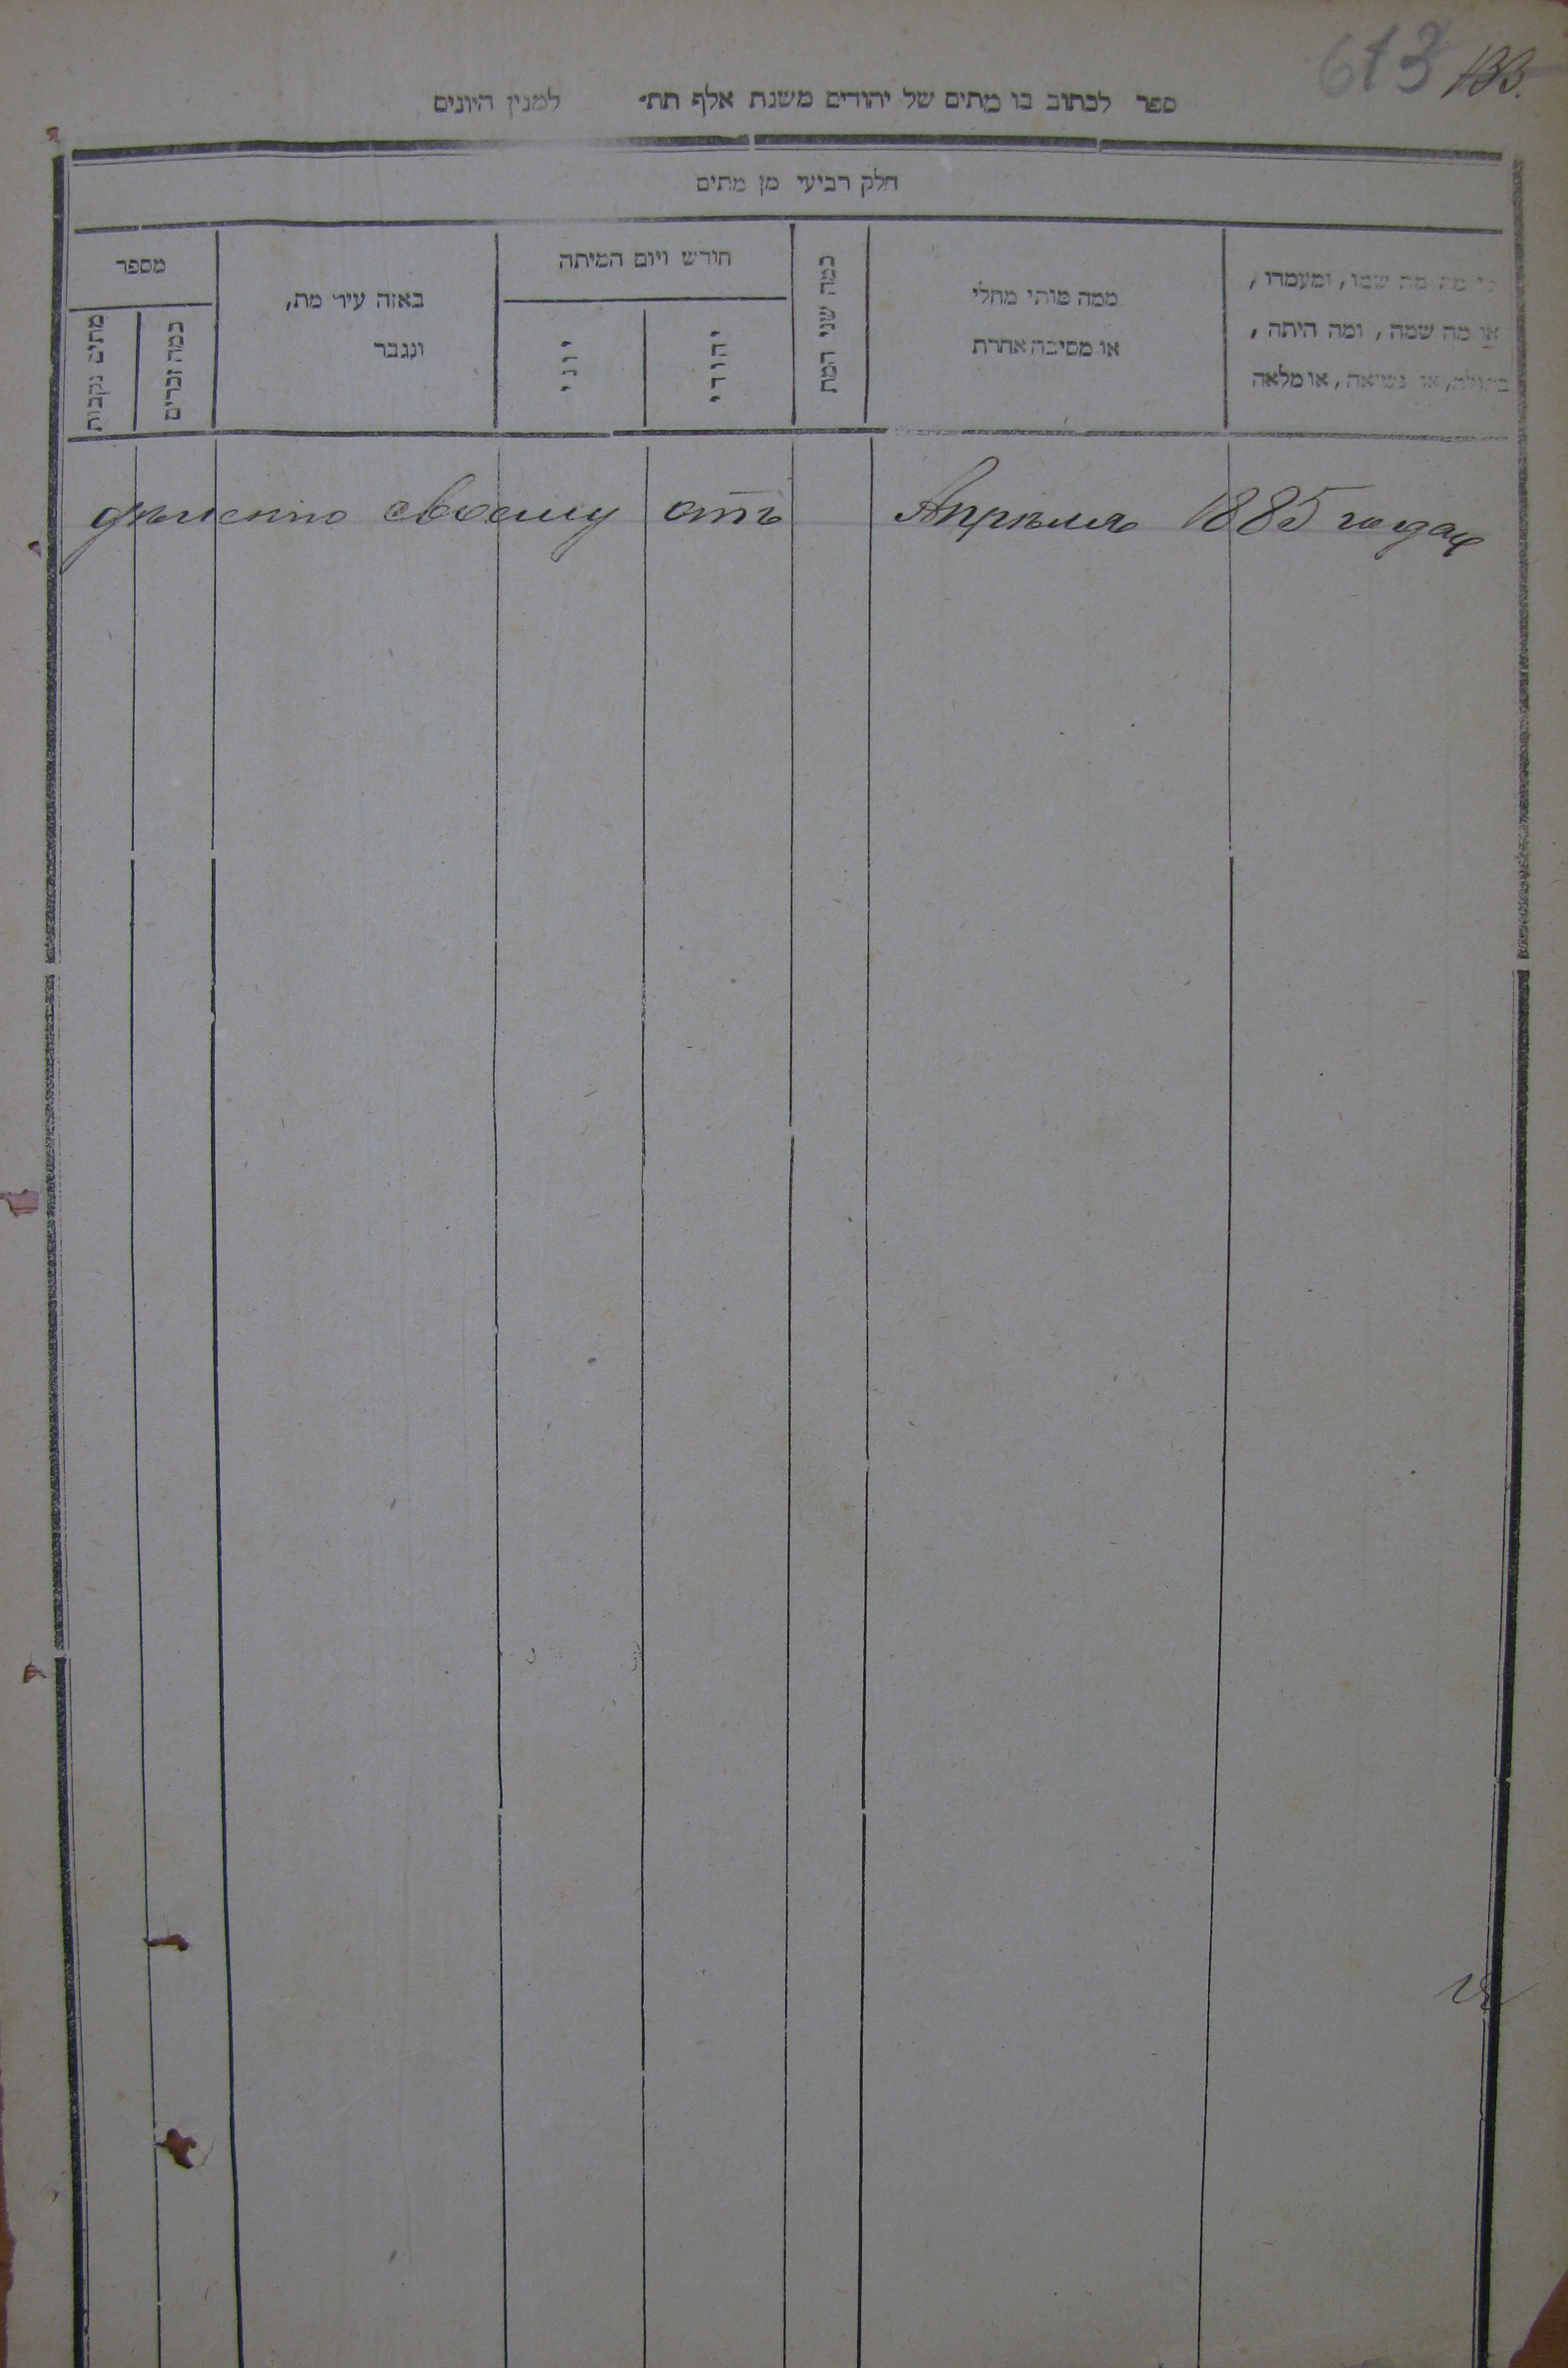 613 133.
ספר לכתוב בו מתים של יהודים משנת אלף תת״ למנין היונים
חלק רביעי מן מתים
מי מת מה שמו, ומעמדו,
או מה שמה, ומה היתה,
בתולה, או נשואה, או מלאה
ממה מותי מחלי
או מסיבה אחרת
כמה שני המת
חודש ויום המיתה
יהודי
יוני
באזה עיר מת,
ונגבר
מספר
כמה זכרים
מתים נקבות
дѣленію своему отъ Апрѣля 1885 года